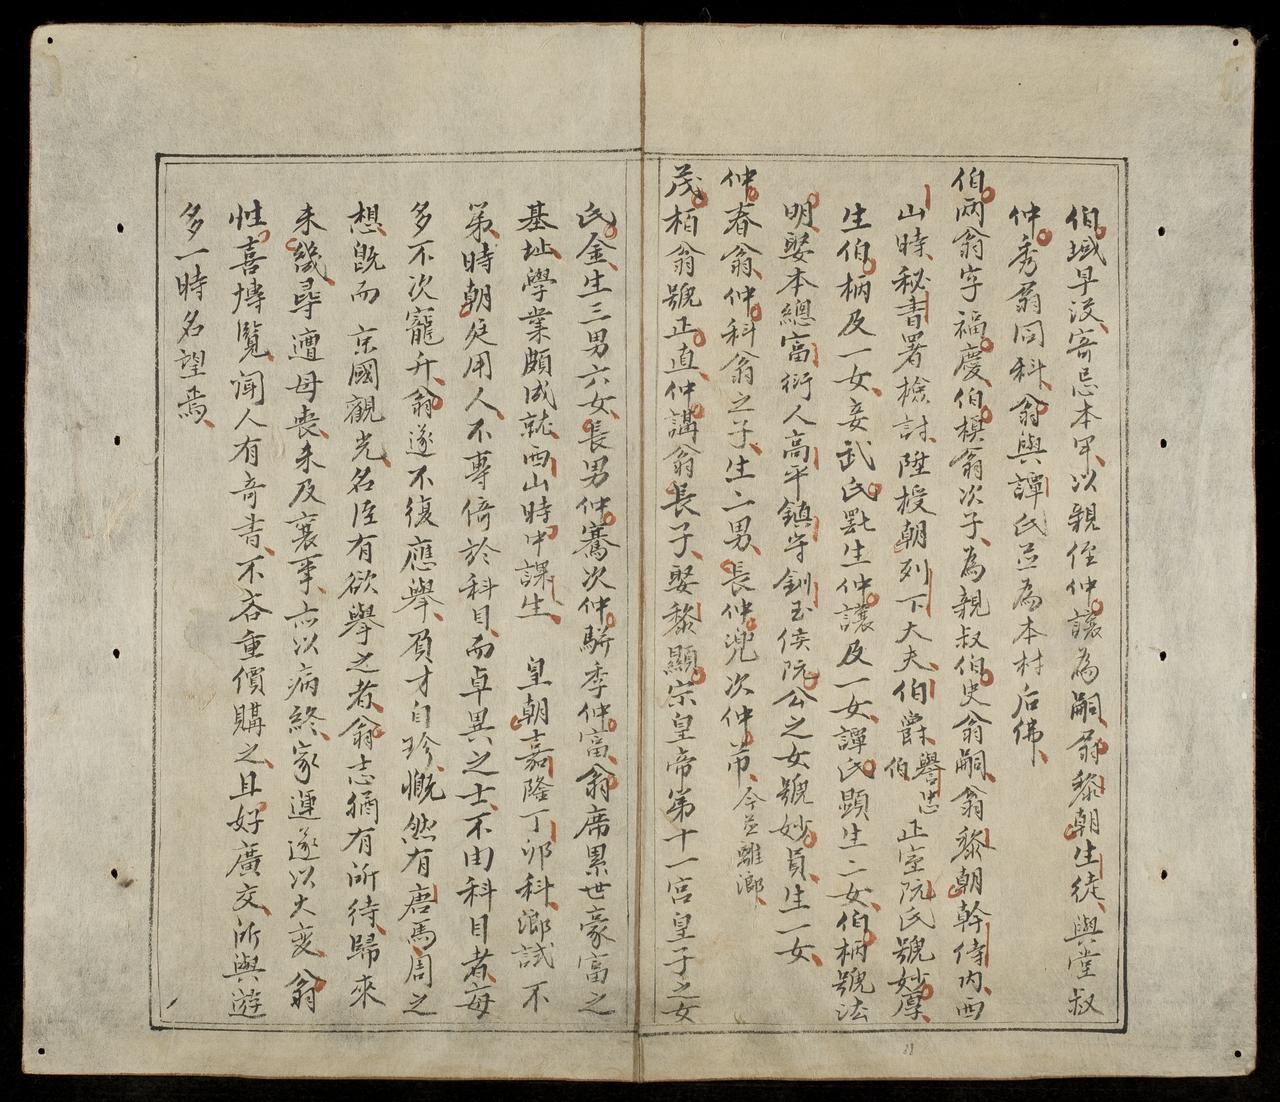 伯域早没寄忌本甲以親侄仲讓為嗣翁黎朝生徒與堂叔
仲秀翁同科翁與譚氏並為本村后佛
伯兩翁字福慶伯模翁次子為親叔伯史翁嗣翁黎朝幹侍内西
山時秘書署檢討陞授朝列下大夫伯爵譽忠伯正室阮氏號妙厚
生伯柄及一女妾武氏㗂生仲讓及一女譚氏顯生二女伯柄號法
明娶本總富衍人高平鎮守釧玉侯阮公之女號妙員生一女
仲春翁仲科翁之子生二男長仲兜次仲芇今並離鄉
茂柏翁號正直仲講翁長子娶黎顯宗皇帝第十一宮皇子之女
氏金生三男六女長男仲騫次仲駢季仲富翁席累世豪富之
基址學業頗成就西山時中課生 皇朝嘉隆丁卯科鄉試不
第時朝廷用人不專倚於科目而卓異之士不由科目者每
多不次寵升翁遂不復應舉負才自珍慨然有唐馬周之
想既而 京國觀光名臣有欲舉之者翁志猶有所待歸來
未幾尋遭母喪未及襄事亦以病終家運遂以大變翁
性喜博覽聞人有奇書不吝重價購之且好廣交所與遊
多一時名望焉